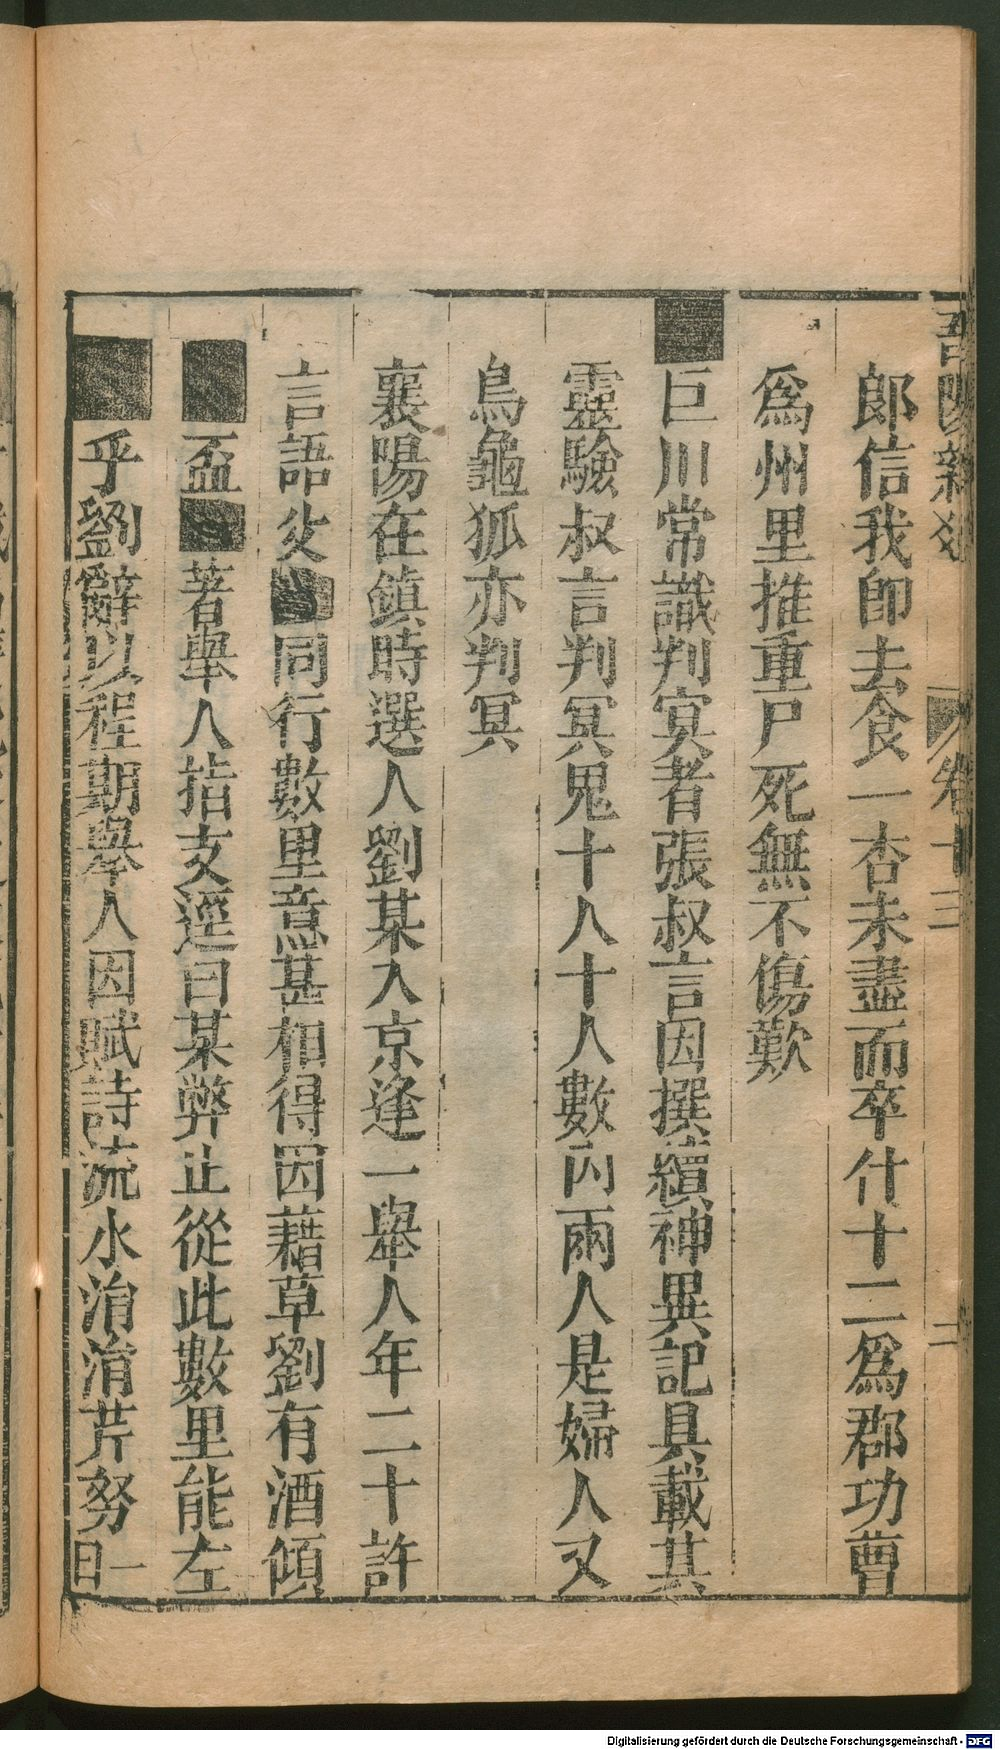 卷十三 二
郎信我即去食一杏未盡而卒什十二爲郡功曹
爲州里推重尸死無不傷歎
巨川常識判㝠者張叔言因撰續神異記具載其
靈驗叔言判冥鬼十八十人數內兩人是婦人又
烏龜狐亦判冥
襄陽在鎮時選人劉某入京逢一舉人年二十許
言語 同行數里意甚相得因藉草劉有酒傾
盃 著舉人指支逕曰某弊止從此數里能左
乎劉辭以程期舉人因賦詩流水涓涓芹努 一曰
Digitalisierung gefördert durch die Deutsche Forschungsgemeinschaft - DFG